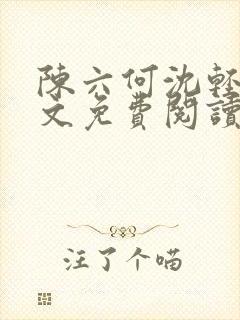 陳六何沈輕
文免費閱讀
注了个喵